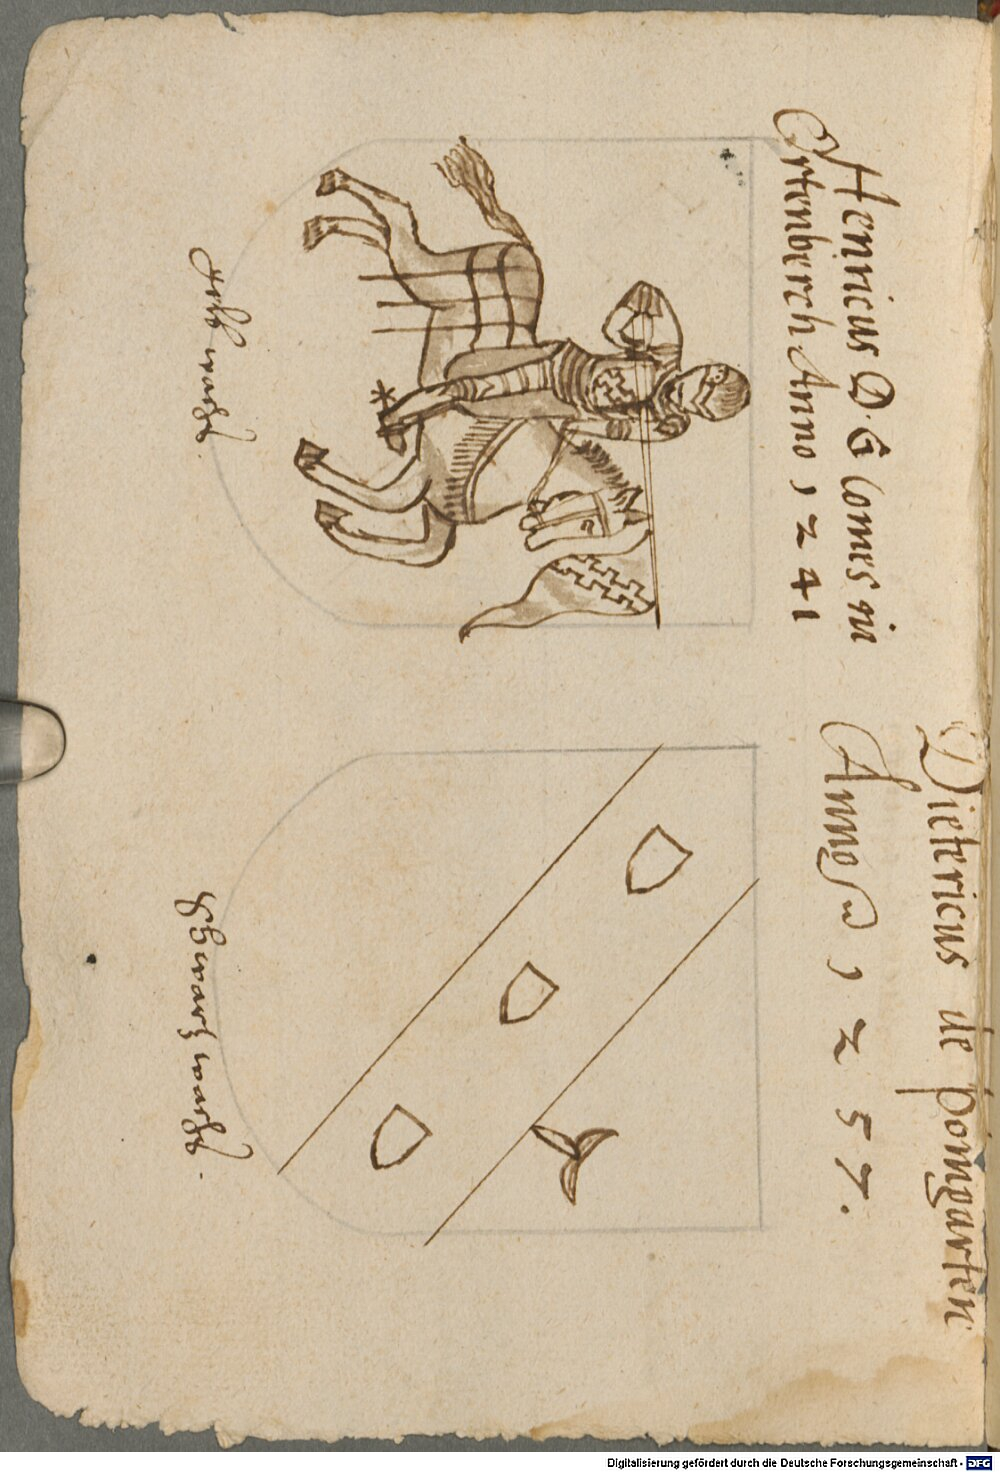 Henricus D. G Comes in
Ortenberch Anno 1241
gelb wachs
Dietericus de pomgarten
Anno 1257.
schwartz wachs.
Digitalisierung gefördert durch die Deutsche Forschungsgemeinschaft - DFG